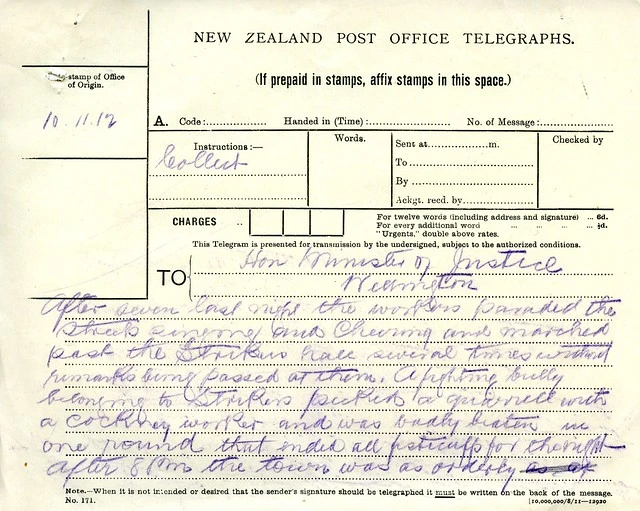 NEW ZEALAND POST OFFICE TELEGRAPHS.
(If prepaid in stamps, affix stamps in this space.)
stamp of Office
of Origin.
10.11.12
A. Code: Handed in (Time): No. of Message:
Instructions:—
Collect
Words.
Sent at m.
To
By
Ackgt. recd. by
Checked by
CHARGES
For twelve words (including address and signature) ... 6d.
For every additional word ... ½d.
"Urgents," double above rates.
This Telegram is presented for transmission by the undersigned, subject to the authorized conditions.
TO
Hon Minister of Justice
Wellington
After seven last night the workers paraded the
streets singing and Cheering and marched
past the Strikers hall several times without
remarks being passed at them. A fighting bully
belonging to Strikers picked a quarrell with
a cockney worker and was badly beaten in
one round that ended all fisticuffs for the night
after 8 PM the town was as orderly
Note.—When it is not intended or desired that the sender's signature should be telegraphed it must be written on the back of the message.
No. 171. [10,000,000/8/11—12920